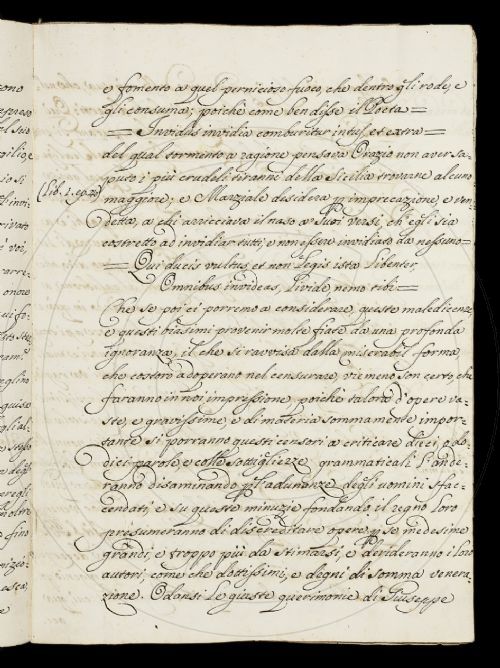 e fomento a quel pernicioso fuoco, che dentro gli rode, e
gli consuma; poichè come ben disse il Poeta =
= Invidus invidia comburitur intus, et extra =
del qual tormento a ragione pensava Orazio non aver sa-
puto i più crudeli tiranni della Sicilia trovarne alcuno
maggiore; e Marziale desidera p imprecazione, e ven-
detta, a chi arricciava il naso a' Suoi versi, ch'egli sia
costretto ad invidiar tutti, e non essere invidiato da nessuno =
= Qui ducis vultus, et non legis ista libenter
Omnibus invideas, livide nemo tibi =
Che se poi ci porremo a considerare, queste maledicenze,
e questi biasimi provenir molte fiate da una profonda
ignoranza, il che si ravvisa dalla miserabil forma,
che costoro adoperano nel censurare, vie meno son certo, che
faranno in noi impressione, poichè talora d'opere va-
ste, e gravissime, e di materia sommamente impor-
tante si porranno questi censori a criticare dieci, o do-
dici parole, e colle sottigliezze grammaticali l'ande-
ranno disaminando p l'adunanze degli uomini sfac-
cendati, e su queste minuzie fondando il regno loro
presumeranno di discreditare opere p se medesime
grandi, e troppo più da stimarsi, e derideranno i loro
autori, come che dottissimi, e degni di somma venera-
zione. Odansi le giuste querimonie di Giuseppe